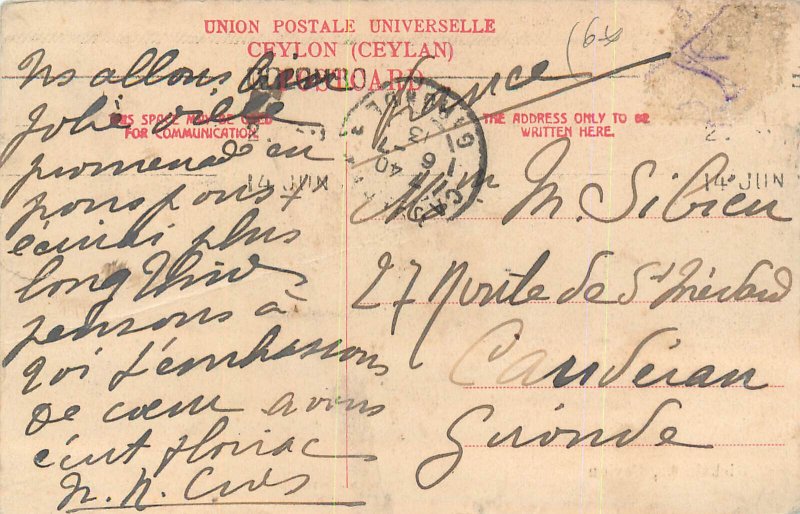 UNION POSTALE UNIVERSELLE
CEYLON (CEYLAN)
POSTCARD
THIS SPACE MAY BE USED
FOR COMMUNICATION.
THE ADDRESS ONLY TO BE
WRITTEN HERE.
14 JUIN
14 JUIN
Ns allons bien
Jolie ville
promenade en
pous pous
écrirai plus
long
pensons à
toi t'embrassons
de cœur avons
écrit Floirac
France
Mme M. Sibieu
27 Route de St Médard
Caudéran
Gironde